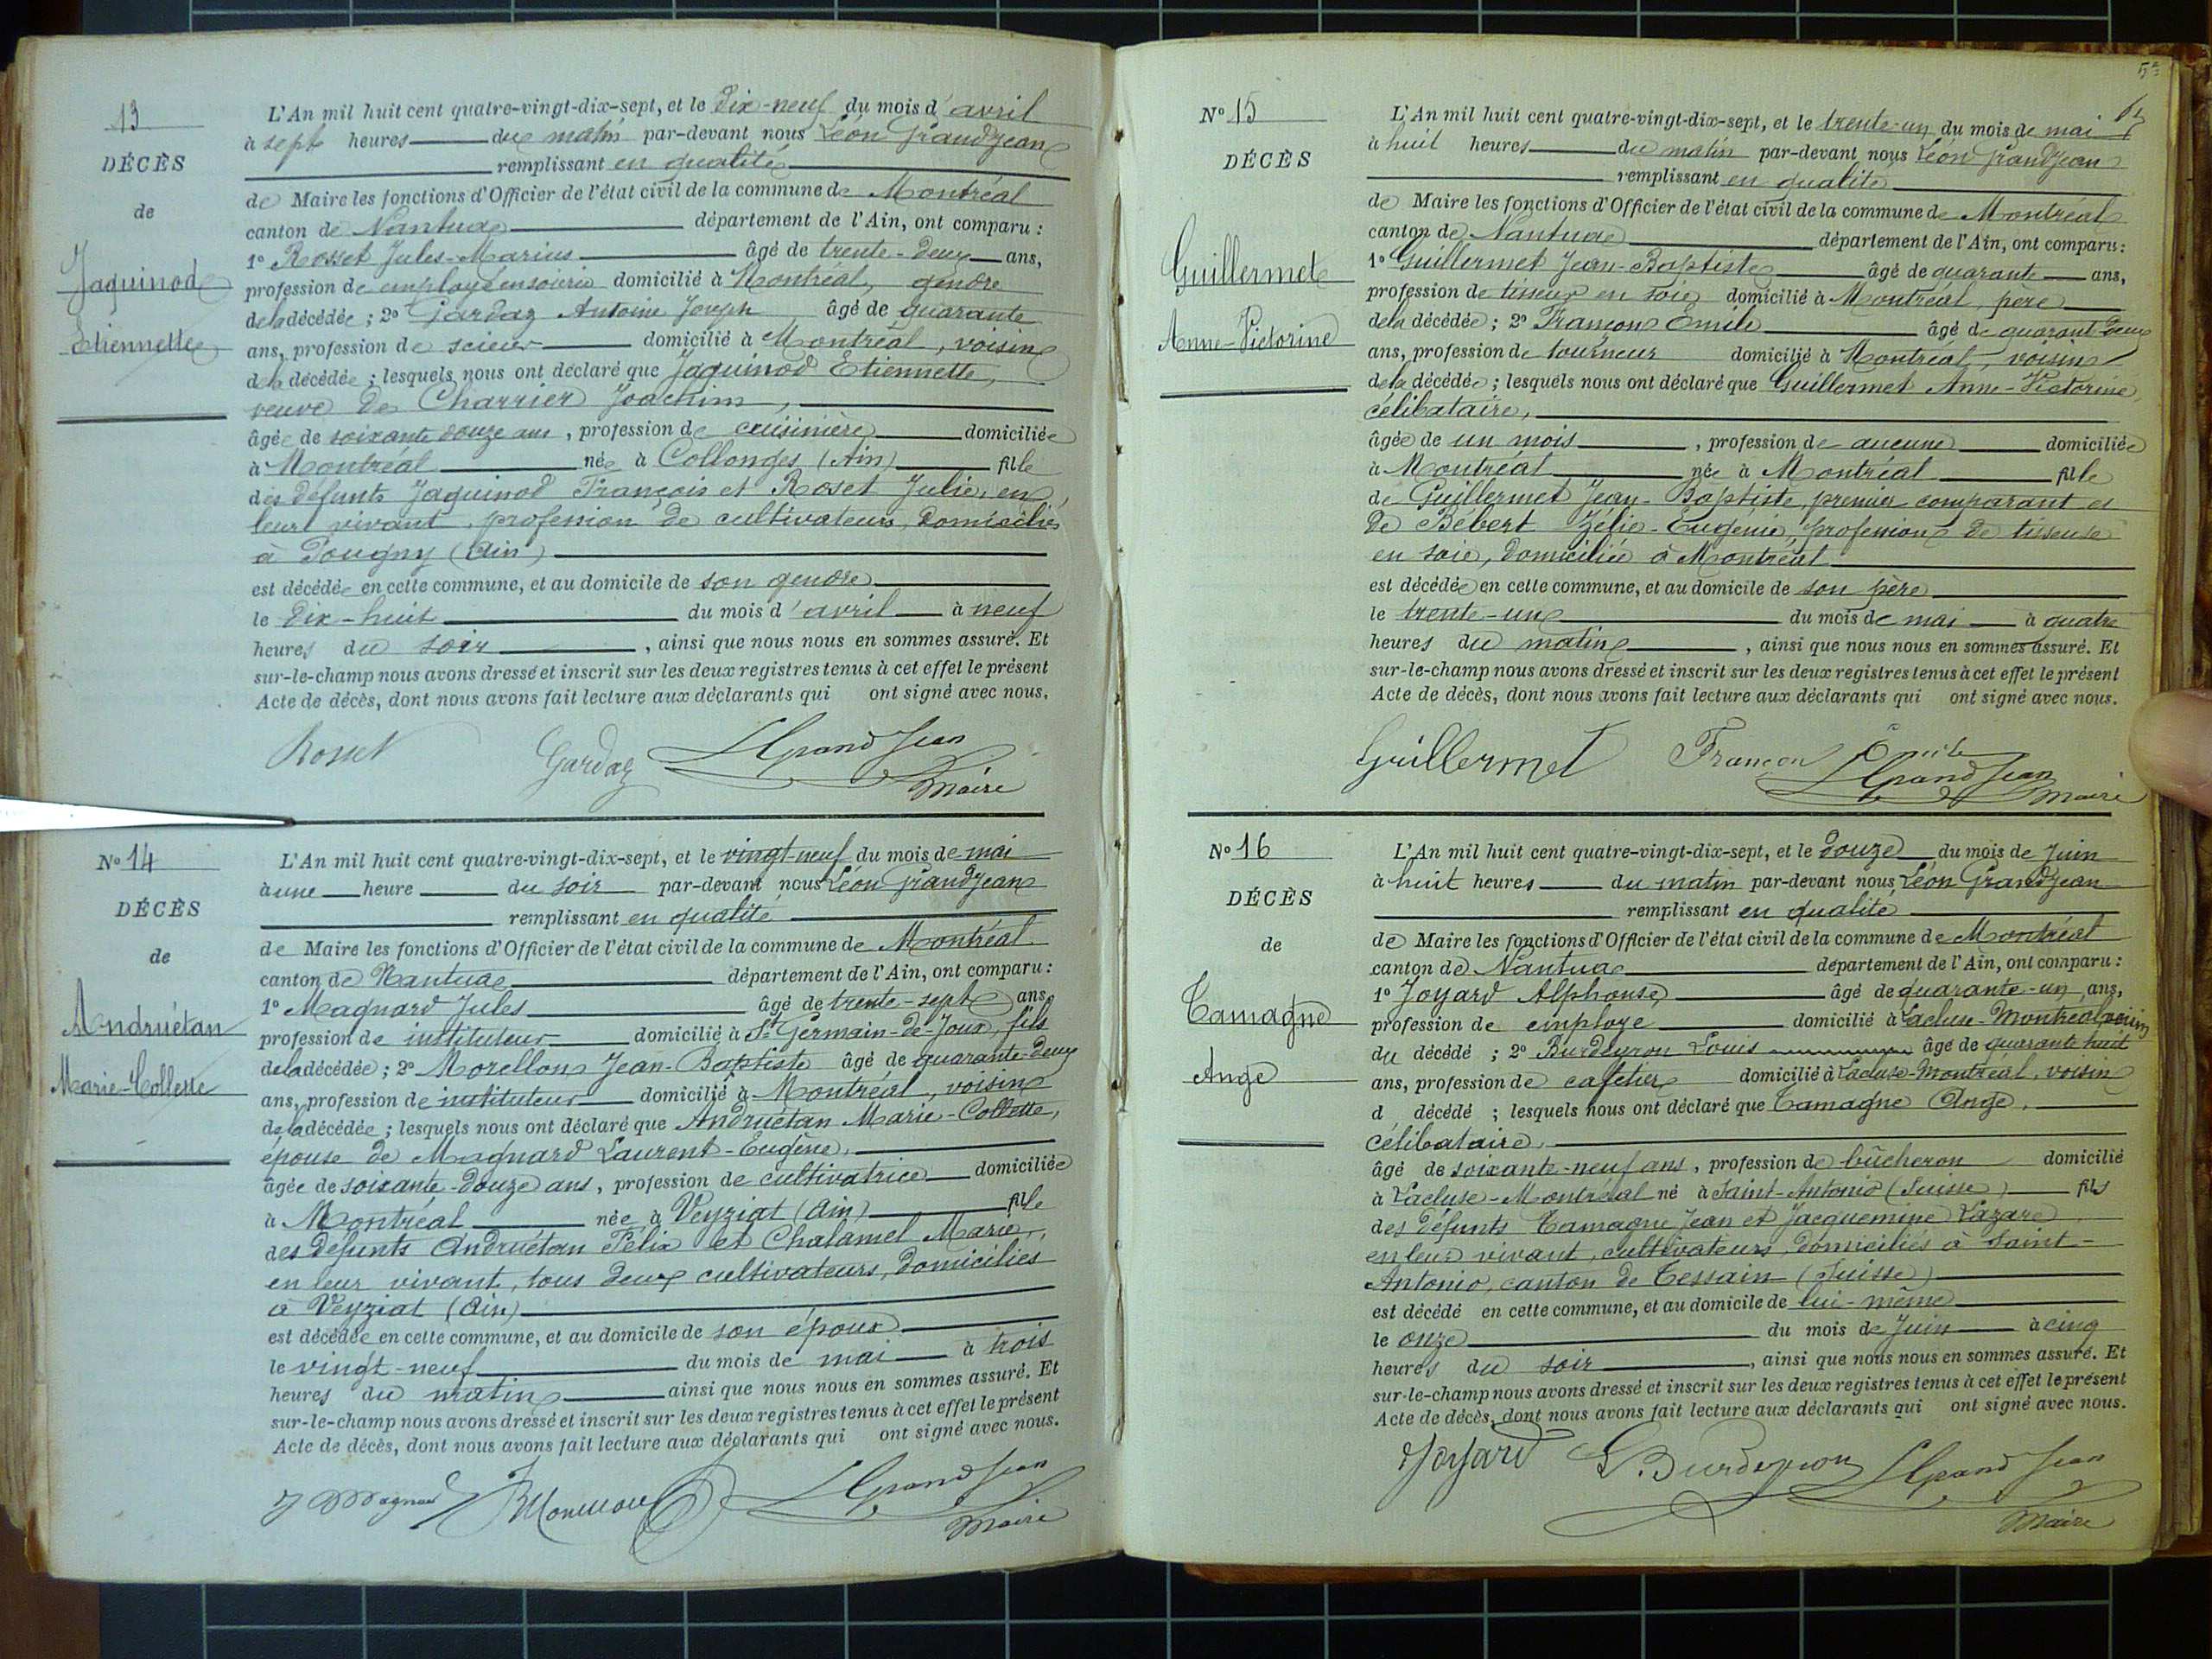 13
DÉCÈS
de
Jaquinod
Etiennette
L'An mil huit cent quatre-vingt-dix-sept, et le dix-neuf du mois d'avril
à sept heures du matin par-devant nous Léon Grandjean
remplissant en qualité
de Maire les fonctions d'Officier de l'état civil de la commune de Montréal
canton de Nantua département de l'Ain, ont comparu :
1° Rosset Jules-Marius âgé de trente-deux ans,
profession de employé en soierie domicilié à Montréal, gendre
de la décédée ; 2° Gardaz Antoine Joseph âgé de quarante
ans, profession de scieur domicilié à Montréal, voisin
de la décédée ; lesquels nous ont déclaré que Jaquinod Etiennette,
veuve de Charrier Joachim,
âgée de soixante douze ans, profession de cuisinière domiciliée
à Montréal née à Collonges (Ain) fille
des défunts Jaquinod François et Roset Julie, en
leur vivant, profession de cultivateurs, domiciliés
à Pougny (Ain)
est décédée en cette commune, et au domicile de son gendre
le dix-huit du mois d'avril à neuf
heures du soir, ainsi que nous nous en sommes assuré. Et
sur-le-champ nous avons dressé et inscrit sur les deux registres tenus à cet effet le présent
Acte de décès, dont nous avons fait lecture aux déclarants qui ont signé avec nous.
Rosset Gardaz LGrandJean
Maire
N° 14
DÉCÈS
de
Andruétan
Marie-Collette
L'An mil huit cent quatre-vingt-dix-sept, et le vingt-neuf du mois de mai
à une heure du soir par-devant nous Léon Grandjean
remplissant en qualité
de Maire les fonctions d'Officier de l'état civil de la commune de Montréal
canton de Nantua département de l'Ain, ont comparu :
1° Magnard Jules âgé de trente-sept ans,
profession de instituteur domicilié à St Germain-de-Joux, fils
de la décédée ; 2° Morellon Jean-Baptiste âgé de quarante-deux
ans, profession de instituteur domicilié à Montréal, voisin
de la décédée ; lesquels nous ont déclaré que Andruétan Marie-Collette,
épouse de Magnard Laurent-Eugène,
âgée de soixante-douze ans, profession de cultivatrice domiciliée
à Montréal née à Veyziat (Ain) fille
des défunts Andruétan Félix et Chalamel Marie,
en leur vivant, tous deux cultivateurs, domiciliés
à Veyziat (Ain)
est décédée en cette commune, et au domicile de son époux
le vingt-neuf du mois de mai à trois
heures du matin ainsi que nous nous en sommes assuré. Et
sur-le-champ nous avons dressé et inscrit sur les deux registres tenus à cet effet le présent
Acte de décès, dont nous avons fait lecture aux déclarants qui ont signé avec nous.
J Magnard LGrandJean
Maire
N° 15
DÉCÈS
Guillermet
Anne-Victorine
L'An mil huit cent quatre-vingt-dix-sept, et le trente-un du mois de mai
à huit heures du matin par-devant nous Léon Grandjean
remplissant en qualité
de Maire les fonctions d'Officier de l'état civil de la commune de Montréal
canton de Nantua département de l'Ain, ont comparu :
1° Guillermet Jean-Baptiste âgé de quarante ans,
profession de tisseur en soie domicilié à Montréal, père
de la décédée ; 2° Françon Emile âgé de quarant-deux
ans, profession de tourneur domicilié à Montréal, voisin
de la décédée ; lesquels nous ont déclaré que Guillermet Anne-Victorine,
célibataire,
âgée de un mois, profession de aucune domiciliée
à Montréal née à Montréal fille
de Guillermet Jean-Baptiste, premier comparant et
de Bébert Zélie-Eugénie, profession de tisseuse
en soie, domiciliée à Montréal
est décédée en cette commune, et au domicile de son père
le trente-un du mois de mai à quatre
heures du matin, ainsi que nous nous en sommes assuré. Et
sur-le-champ nous avons dressé et inscrit sur les deux registres tenus à cet effet le présent
Acte de décès, dont nous avons fait lecture aux déclarants qui ont signé avec nous.
Guillermet Françon Emile
LGrandJean
Maire
N° 16
DÉCÈS
de
Tamagne
Ange
L'An mil huit cent quatre-vingt-dix-sept, et le douze du mois de Juin
à huit heures du matin par-devant nous Léon Grandjean
remplissant en qualité
de Maire les fonctions d'Officier de l'état civil de la commune de Montréal
canton de Nantua département de l'Ain, ont comparu :
1° Joyard Alphonse âgé de quarante-un ans,
profession de employé domicilié à Lacluse-Montréal, voisin
du décédé ; 2° Burdeyron Louis âgé de quarante huit
ans, profession de cafetier domicilié à Lacluse-Montréal, voisin
d décédé ; lesquels nous ont déclaré que Tamagne Ange,
célibataire,
âgé de soixante-neuf ans, profession de bûcheron domicilié
à Lacluse-Montréal né à Saint-Antonio (Suisse) fils
des défunts Tamagne Jean et Jacquemine Lazare
en leur vivant, cultivateurs, domiciliés à Saint-
Antonio, canton de Tessain (Suisse)
est décédé en cette commune, et au domicile de lui-même
le onze du mois de Juin à cinq
heures du soir, ainsi que nous nous en sommes assuré. Et
sur-le-champ nous avons dressé et inscrit sur les deux registres tenus à cet effet le présent
Acte de décès, dont nous avons fait lecture aux déclarants qui ont signé avec nous.
Joyard L Burdeyron LGrandJean
Maire